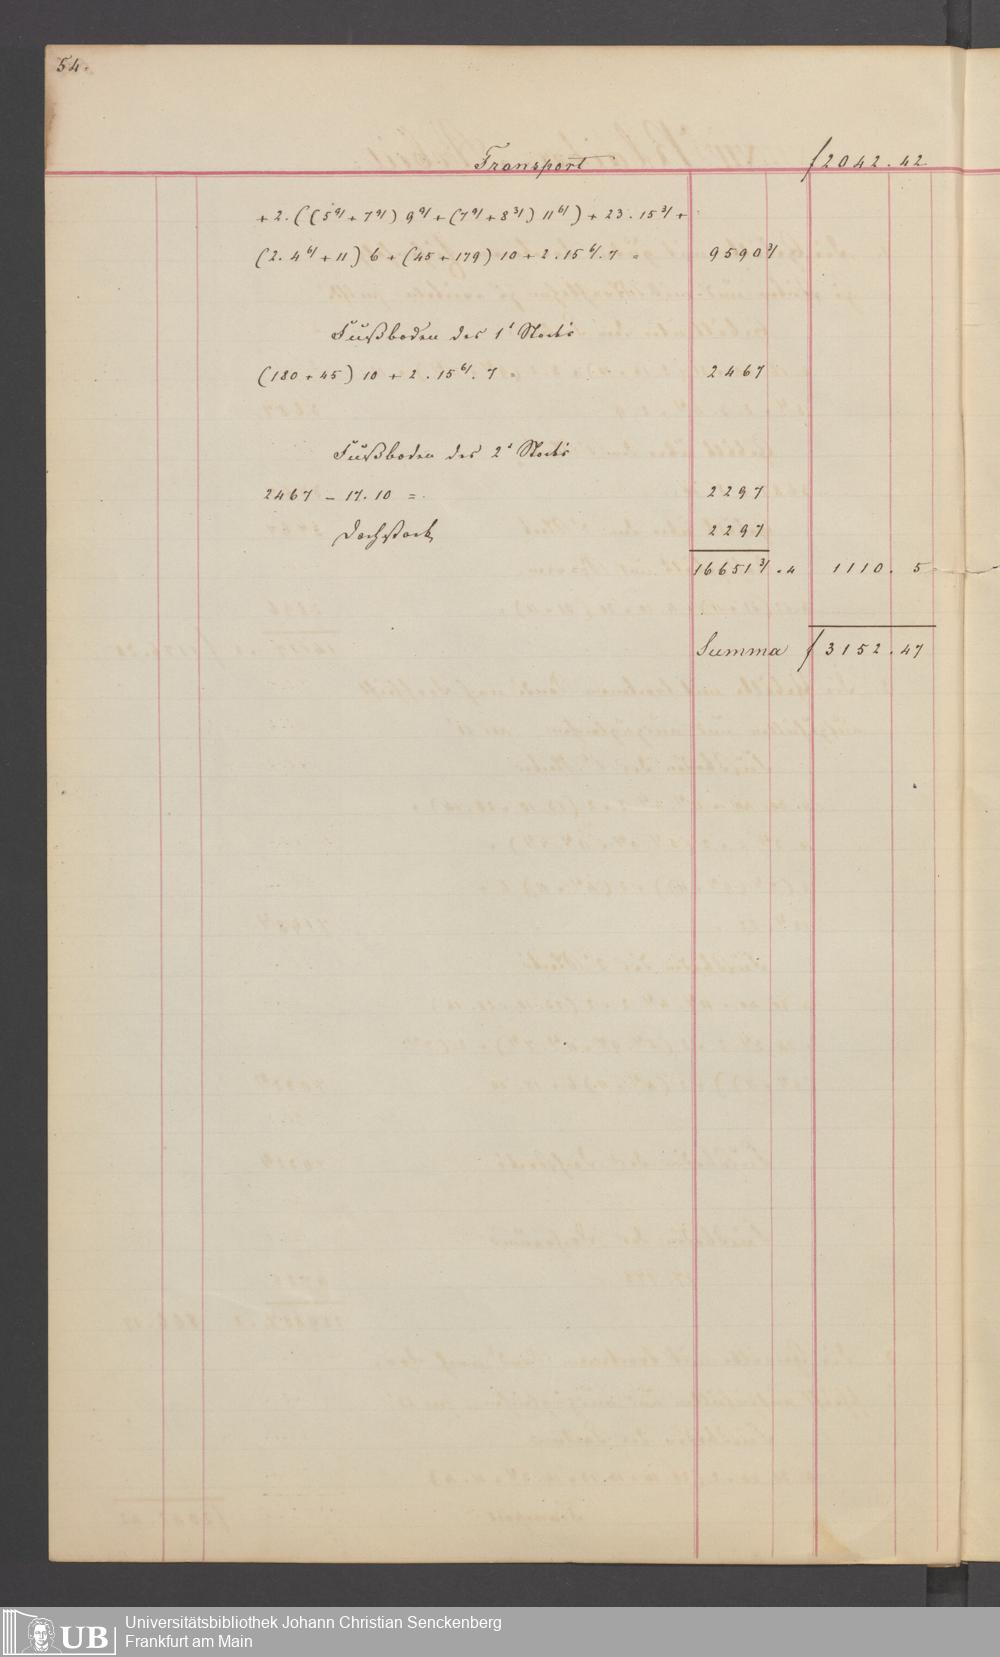 54.
Transport f 2042.42
+2.((5 9/ + 7 9/) 9 9/ + (7 9/ + 8 3/) 11 6/) + 23.15 3/ +
(2. 4 6/ + 11) 6 + (45 + 179) 10 + 2.15 6/. 7 = 9590 3/
Fußboden des 1' Stocks
(180 + 45) 10 + 2.15 6/. 7 = 2467
Fußboden des 2' Stocks
2467 – 17.10 = 2297
Dachstock 2297
16651 3/ . 4 1110. 5
Summa f 3152.47
UB Universitätsbibliothek Johann Christian Senckenberg
Frankfurt am Main